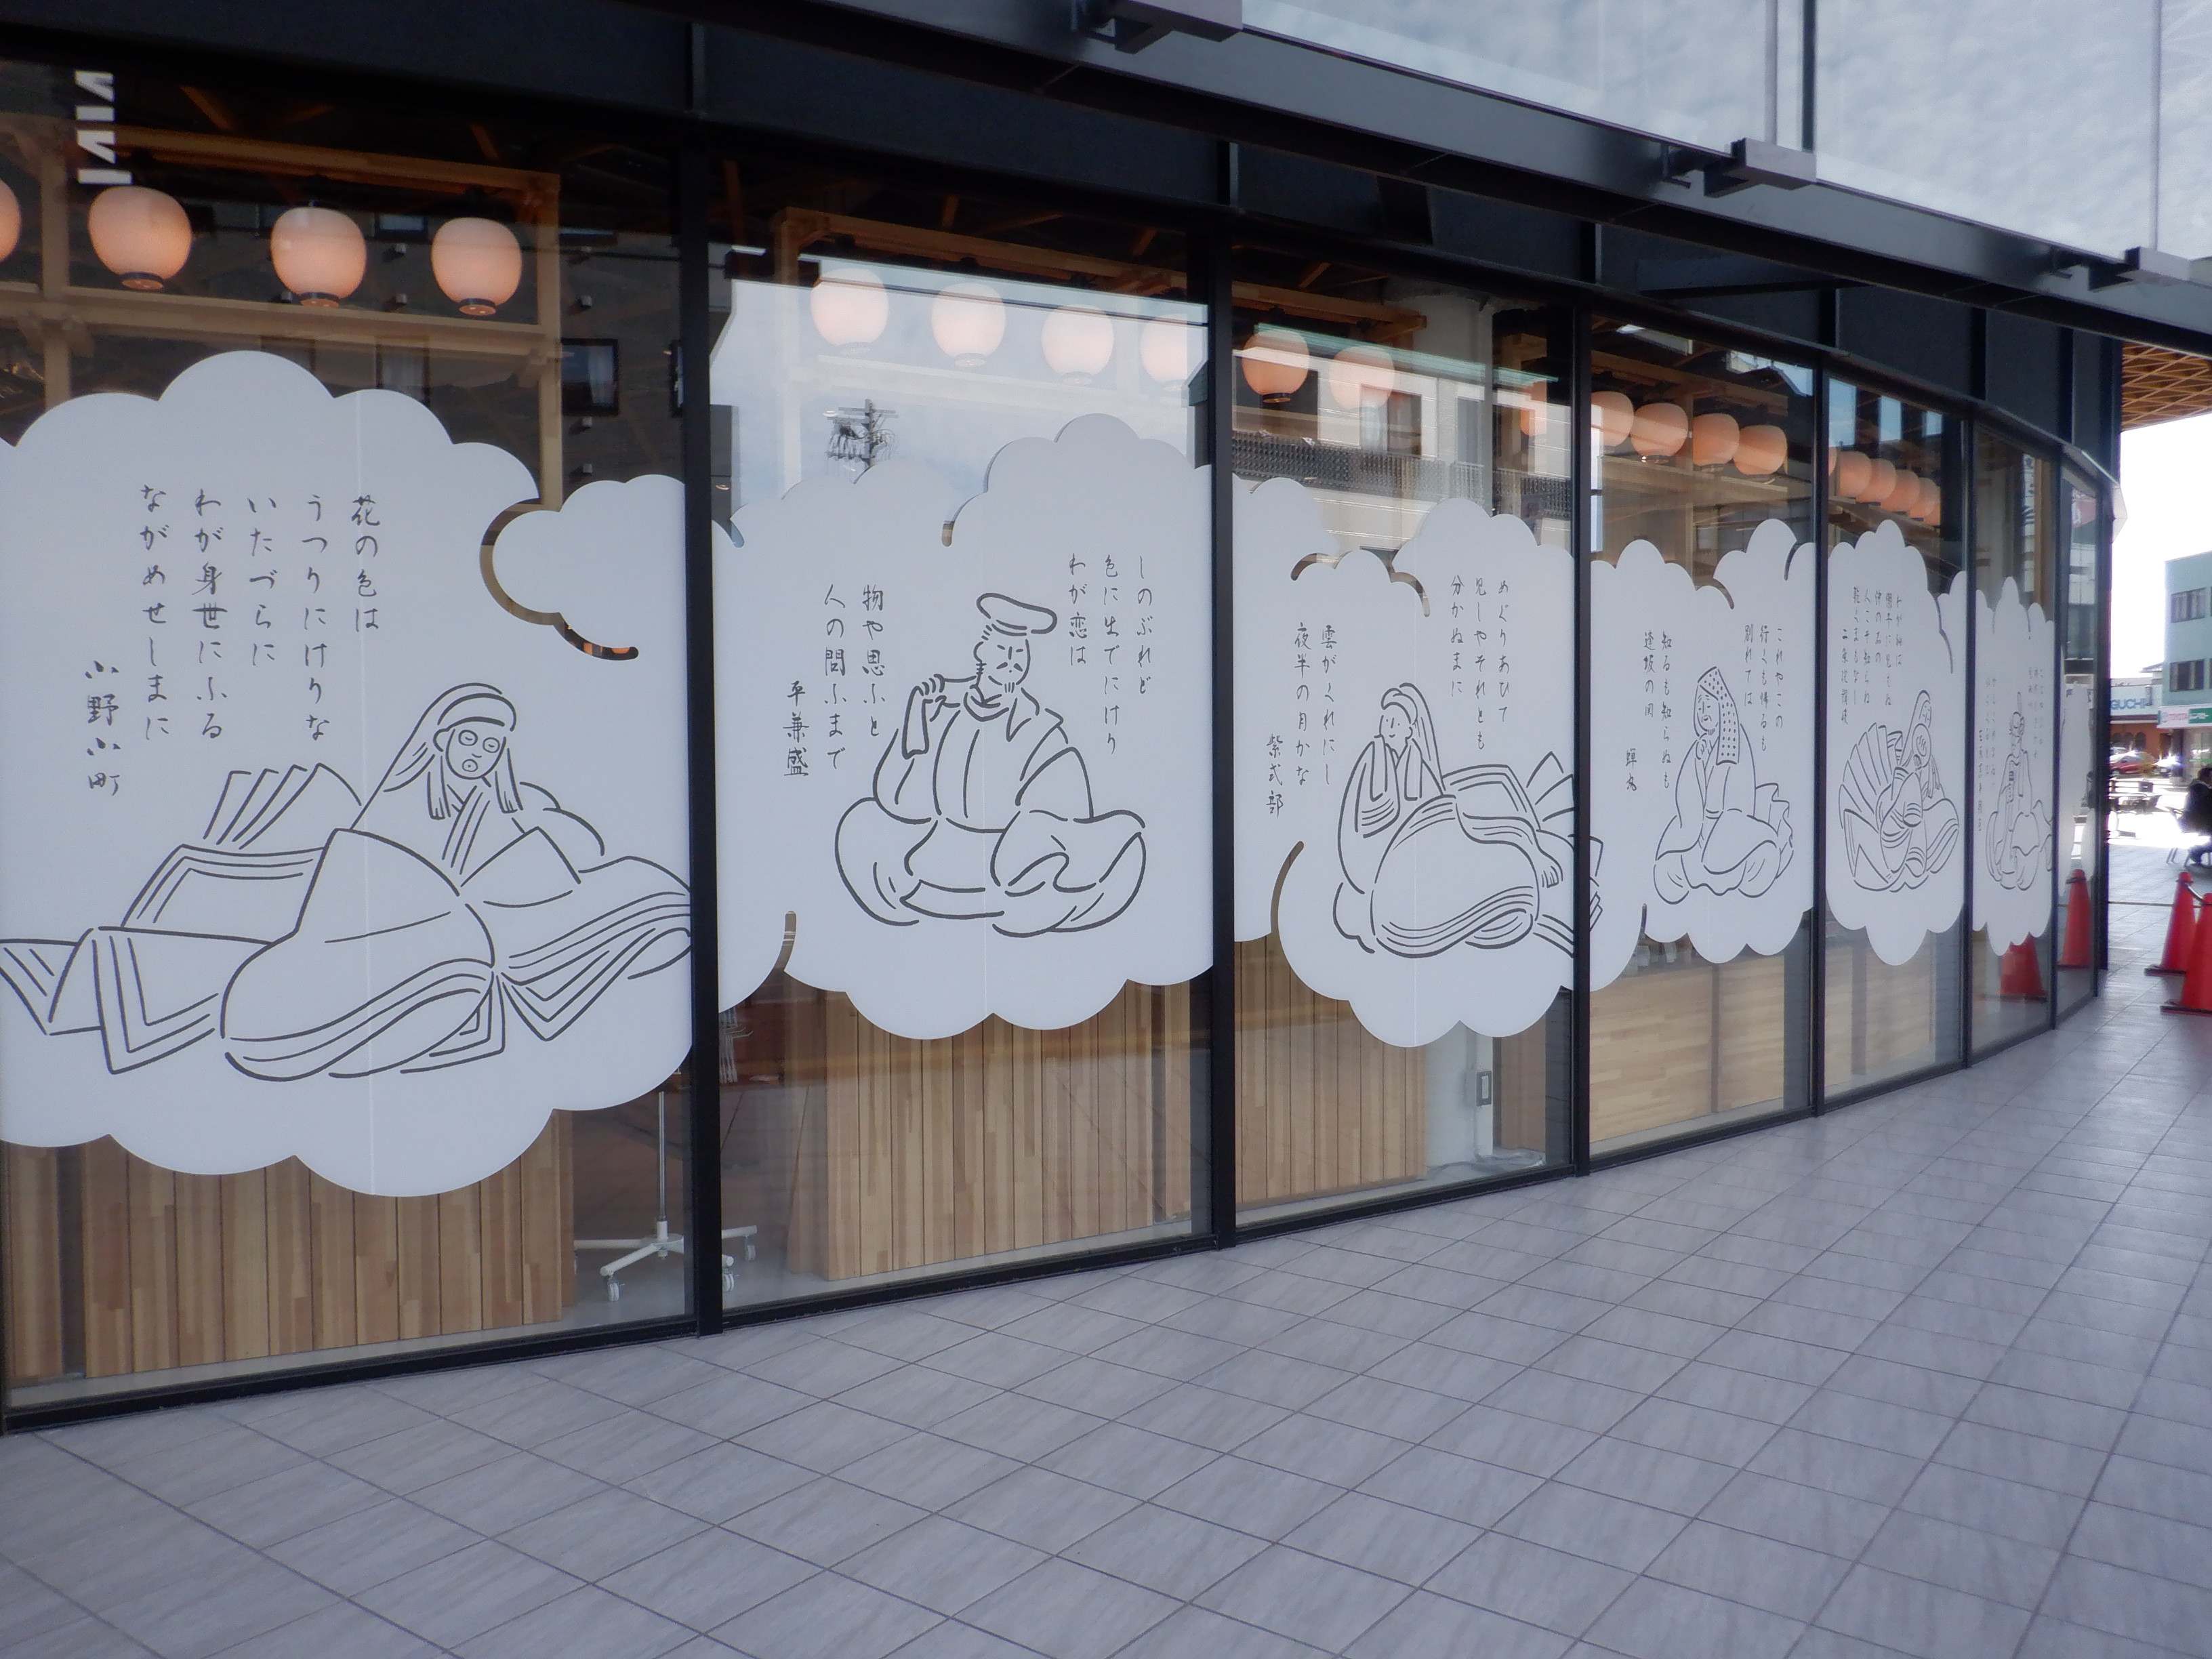 花の色は
うつりにけりな
いたづらに
わが身世にふる
ながめせしまに
小野小町
しのぶれど
色に出でにけり
わが恋は
物や思ふと
人の問ふまで
平兼盛
めぐりあひて
見しやそれとも
分かぬまに
雲がくれにし
夜半の月かな
紫式部
これやこの
行くも帰るも
別れては
知るも知らぬも
逢坂の関
蝉丸
わが袖は
潮干に見えぬ
沖の石の
人こそ知らね
乾く間もなし
二条院讃岐
GUCHI